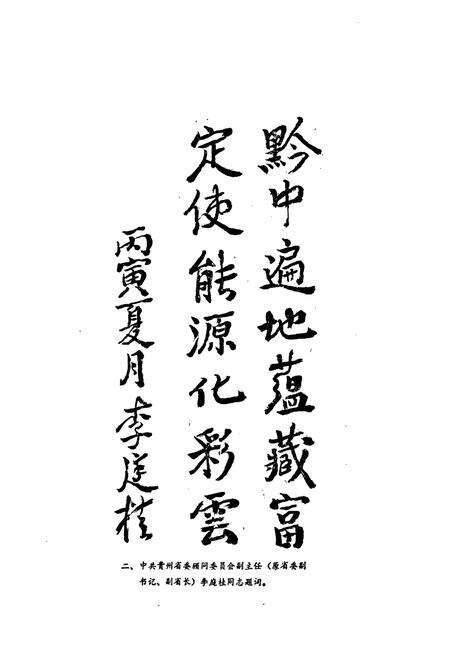 黔中遍地蕴藏富
定使能源化彩雲
丙寅夏月 李庭桂
二、中共贵州省委顾问委员会副主任（原省委副
书记、副省长）李庭桂同志题词。